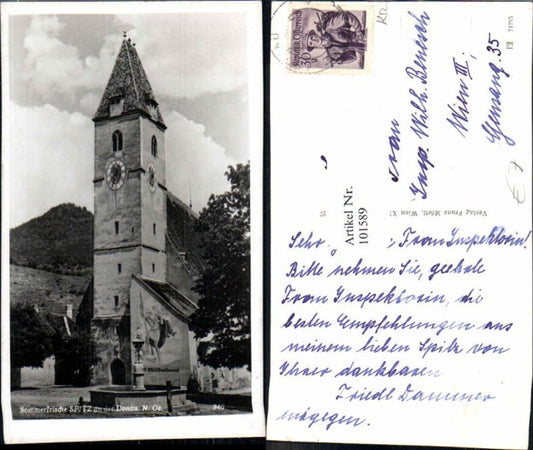 Sommerfrische SPITZ an der Donau. N. Oe.
340
Christophorus
30
Republik Österreich
Frau
Insp. Wilh. Benesch
Wien III.
Gensang. 35
Verlag Franz Mörtl, Wien XI
Artikel Nr.
101589
Sehr , Frau Inspektorin!
Bitte nehmen Sie, geehrte
Frau Inspektorin, die
besten Empfehlungen aus
meinem lieben Spitz von
Ihrer dankbaren
Friedl Dammer
entgegen.